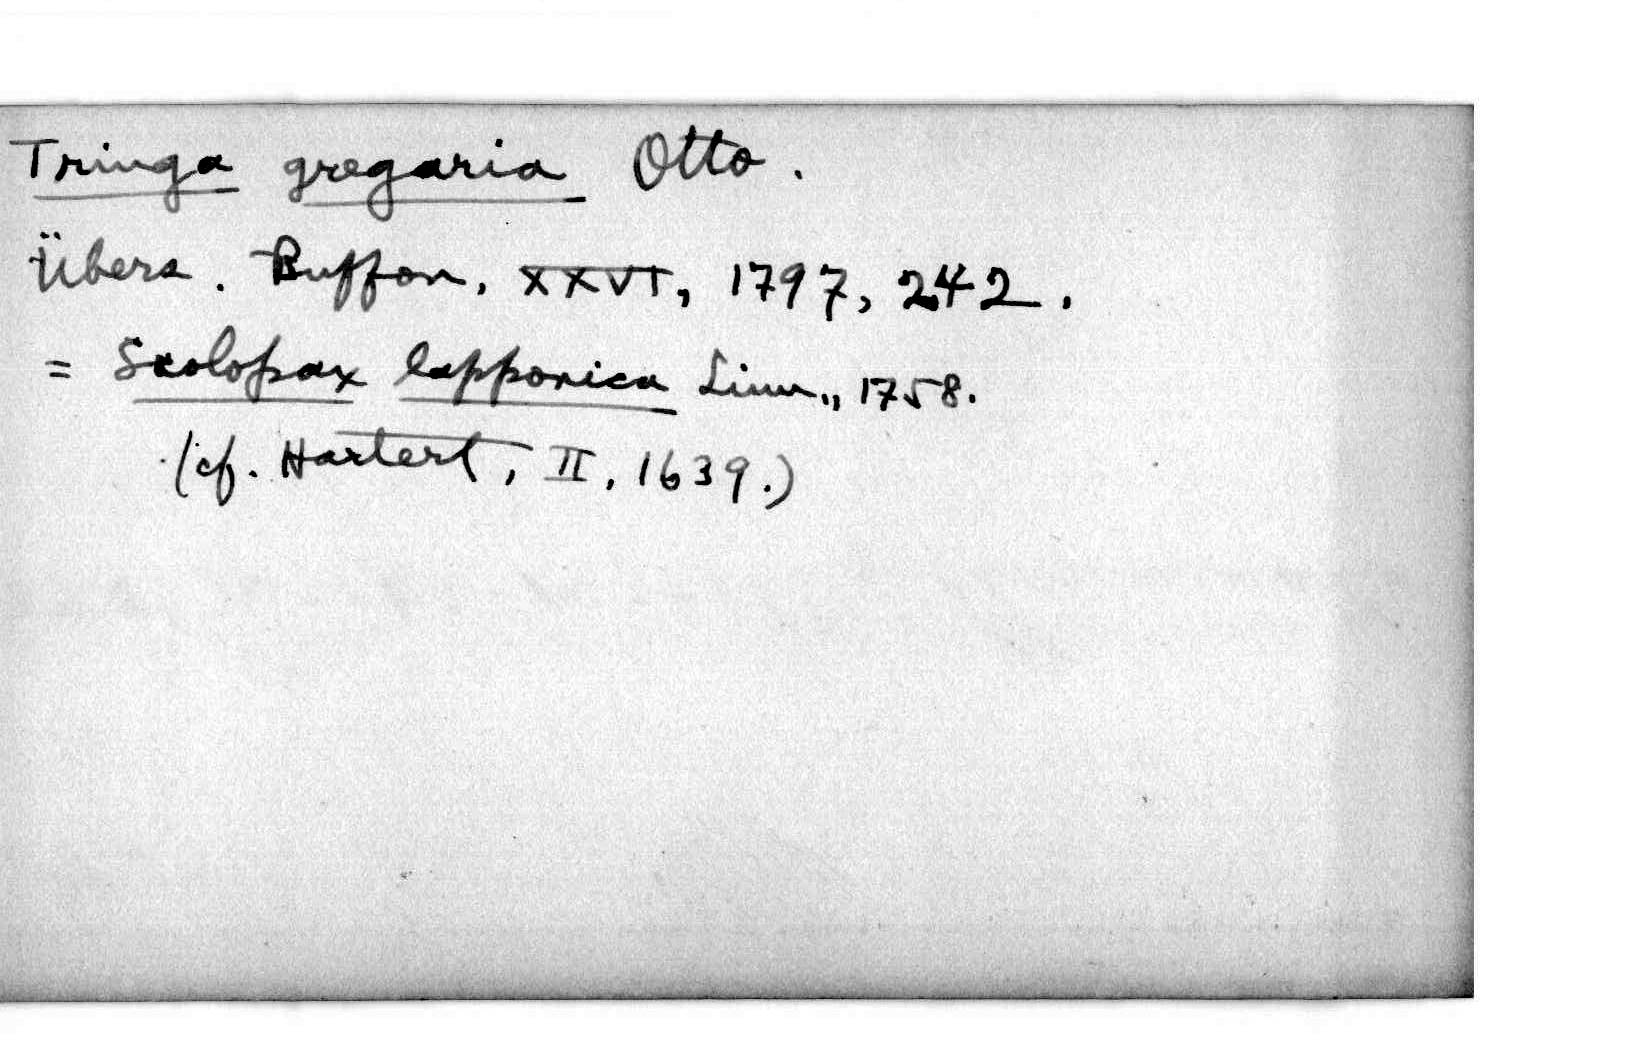 Tringa gregaria Otto.
Übers. Buffon, XXVI, 1797, 242.
= Scolopax lapponica Linn., 1758.
(cf. Hartert, II, 1639.)